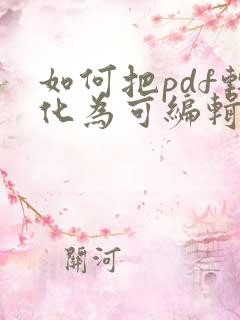 如何把pdf轉
化為可編輯
關河